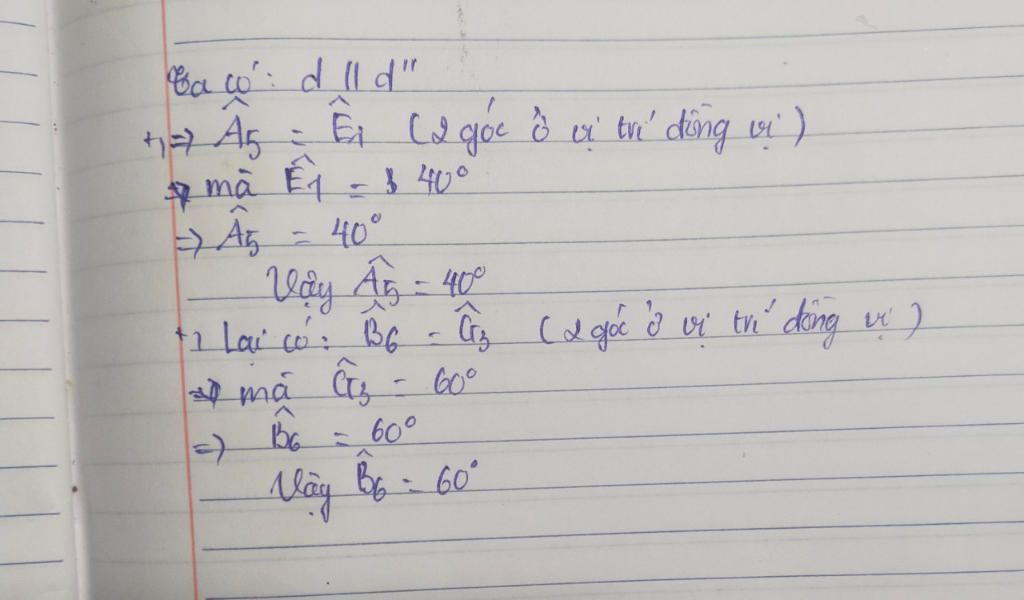 Ta có: d || d''
+, => Â5 = Ê1 (2 góc ở vị trí đồng vị)
mà Ê1 = 40°
=> Â5 = 40°
Vậy Â5 = 40°
+, Lại có: B̂6 = Ĝ3 (2 góc ở vị trí đồng vị)
mà Ĝ3 = 60°
=> B̂6 = 60°
Vậy B̂6 = 60°